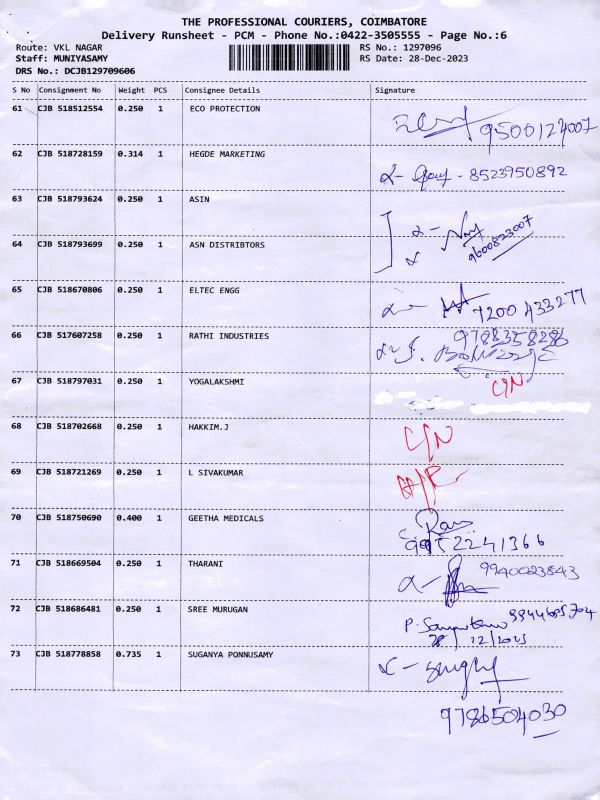 THE PROFESSIONAL COURIERS, COIMBATORE
Delivery Runsheet - PCM - Phone No.:0422-3505555 - Page No.:6
Route: VKL NAGAR RS No.: 1297096
Staff: MUNIYASAMY RS Date: 28-Dec-2023
DRS No.: DCJB129709606
S No Consignment No Weight PCS Consignee Details Signature
61 CJB 518512554 0.250 1 ECO PROTECTION
9500124007
62 CJB 518728159 0.314 1 HEGDE MARKETING
8523950892
63 CJB 518793624 0.250 1 ASIN
9600823007
64 CJB 518793699 0.250 1 ASN DISTRIBTORS
65 CJB 518670806 0.250 1 ELTEC ENGG
7200 433277
66 CJB 517607258 0.250 1 RATHI INDUSTRIES
9788358286
67 CJB 518797031 0.250 1 YOGALAKSHMI
C/N
68 CJB 518702668 0.250 1 HAKKIM.J
C/N
69 CJB 518721269 0.250 1 L SIVAKUMAR
70 CJB 518750690 0.400 1 GEETHA MEDICALS
71 CJB 518669504 0.250 1 THARANI
9940023843
72 CJB 518686481 0.250 1 SREE MURUGAN
28/12/2023
73 CJB 518778858 0.735 1 SUGANYA PONNUSAMY
9786504030